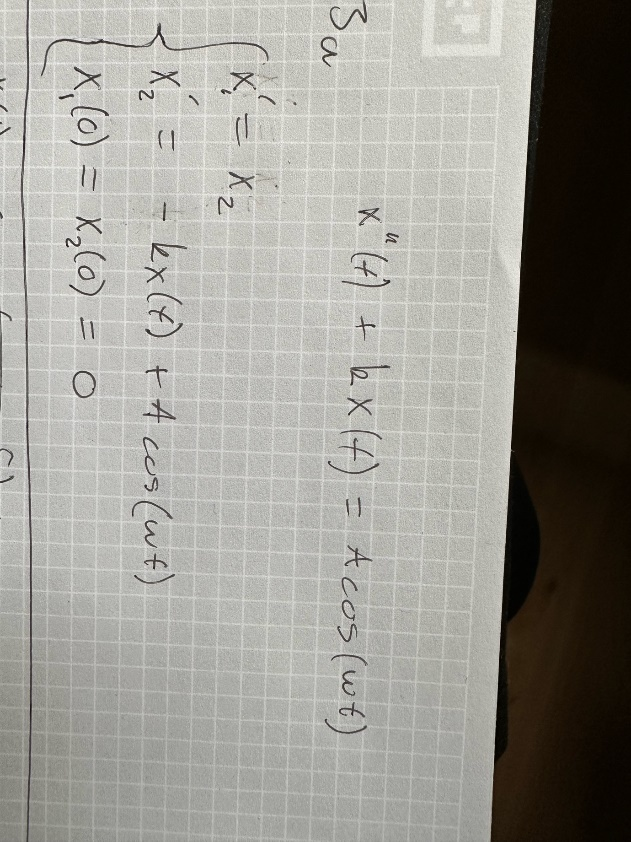 3a
x''(t) + kx(t) = A cos(ωt)
x₁' = x₂
x₂' = - kx(t) + A cos(ωt)
x₁(0) = x₂(0) = 0